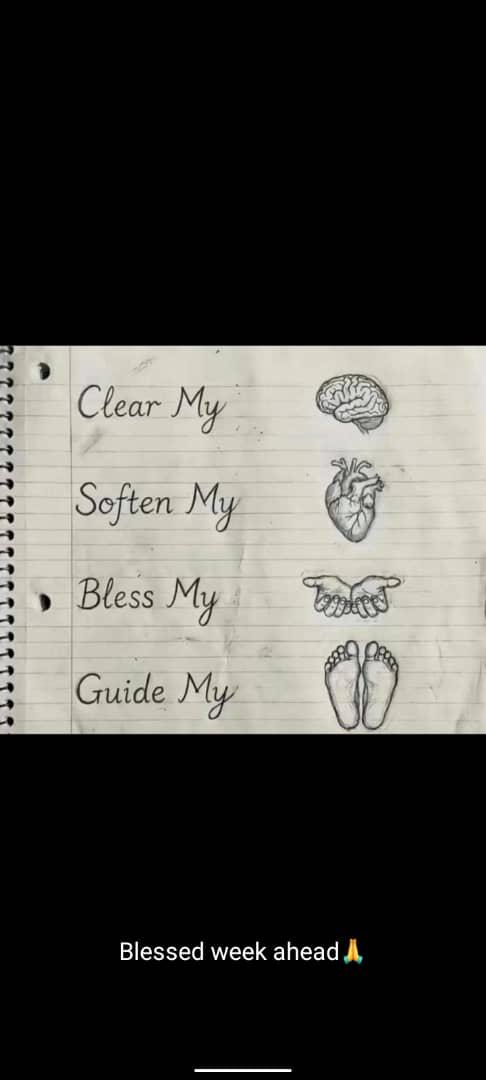 Clear My
Soften My
Bless My
Guide My
Blessed week ahead🙏